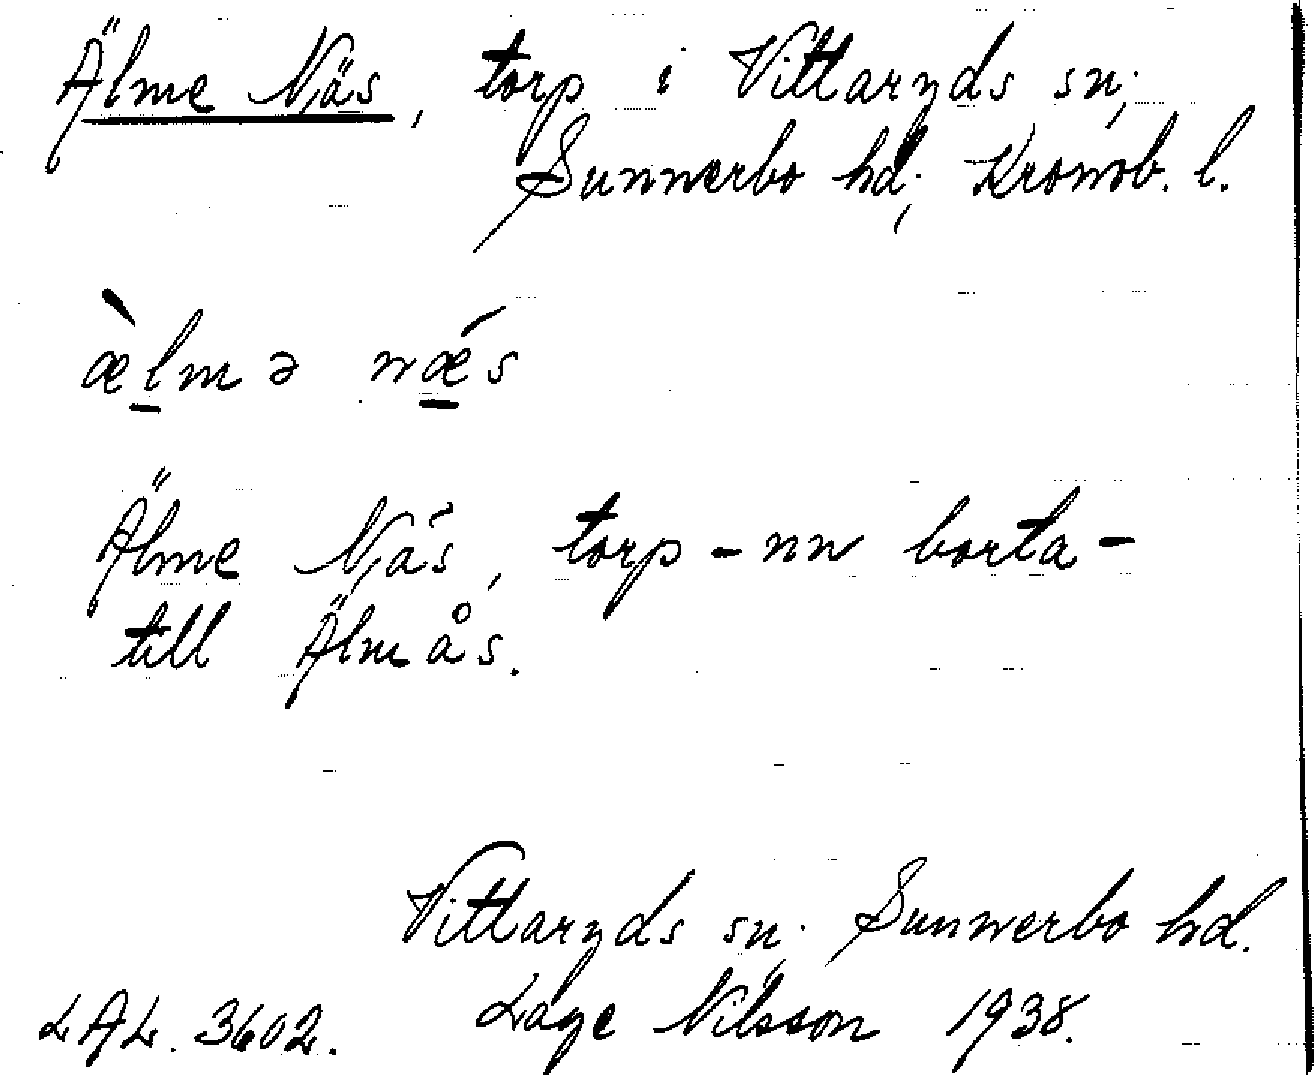 Älme Näs, torp i Vittaryds sn,
Sunnerbo hd, Kronob. l.
æ̀lmə nǽs
Älme Näs, torp - nu borta -
till Älmås.
Vittaryds sn, Sunnerbo hd.
LAL. 3602. Lage Nilsson 1938.